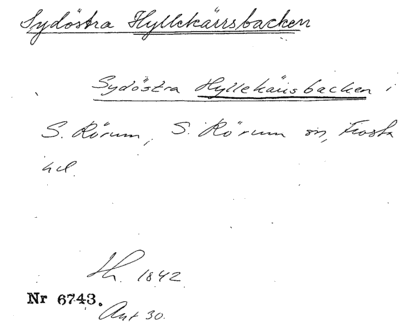 Sydöstra Hyllekärrsbacken
Sydöstra Hyllekärrsbacken i
S. Rörum, S. Rörum sn, Frosta
hd.
Sh. 1842
Nr 6743.
Akt 30.